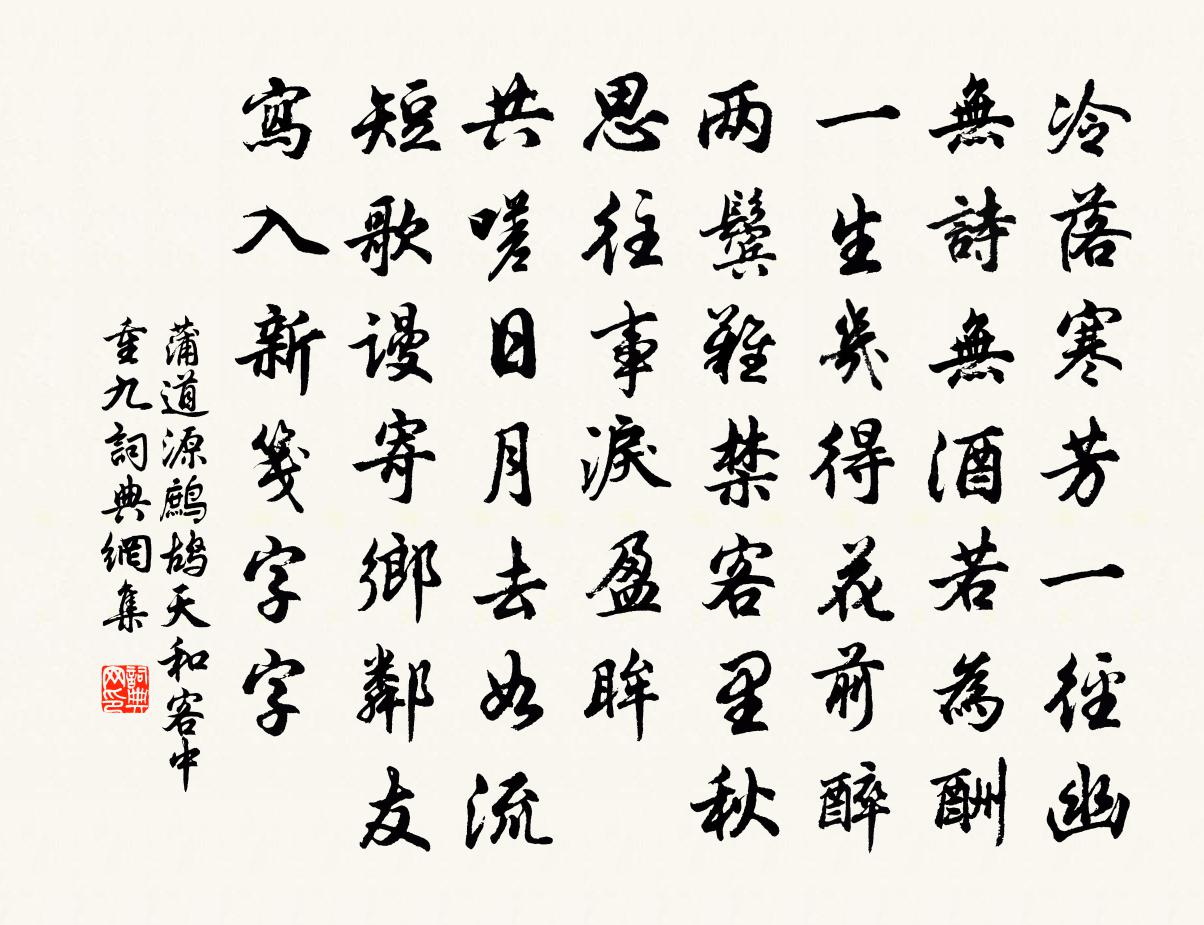 冷落寒芳一徑幽
無詩無酒若為酬
一生幾得花前醉
两鬢難禁客里秋
思往事淚盈眸
共嗟日月去如流
短歌謾寄鄉鄰友
寫入新箋字字
蒲道源鷓鴣天和客中
重九詞典網集
詞典网印